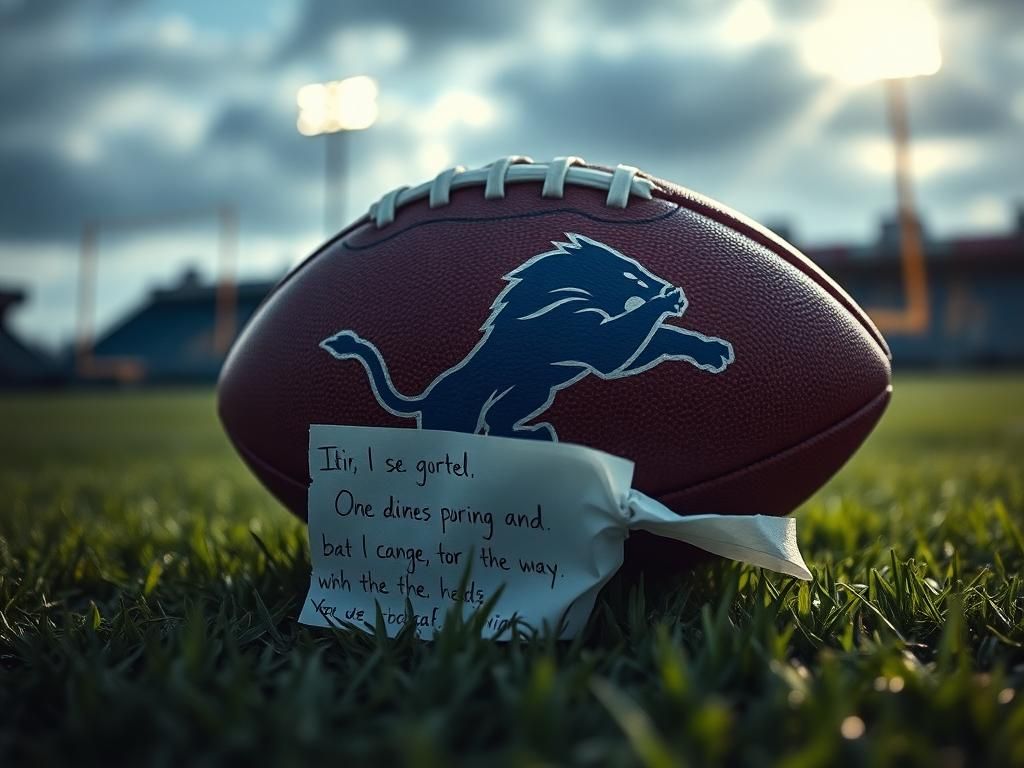 Itir, I se gortel.
One dines poring and.
bat I cange, tor the way.
winh the the. helds